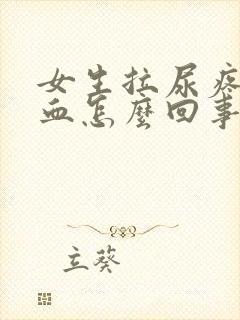 女生拉尿疼
血怎麼回事
立葵